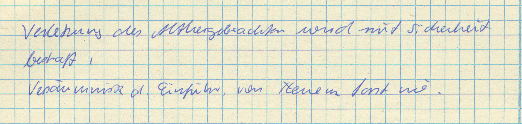 Verletzung des Althergebrachten wird mit Sicherheit
bestraft,
Versäumnisse d. Einführ. von Neuem fast nie.